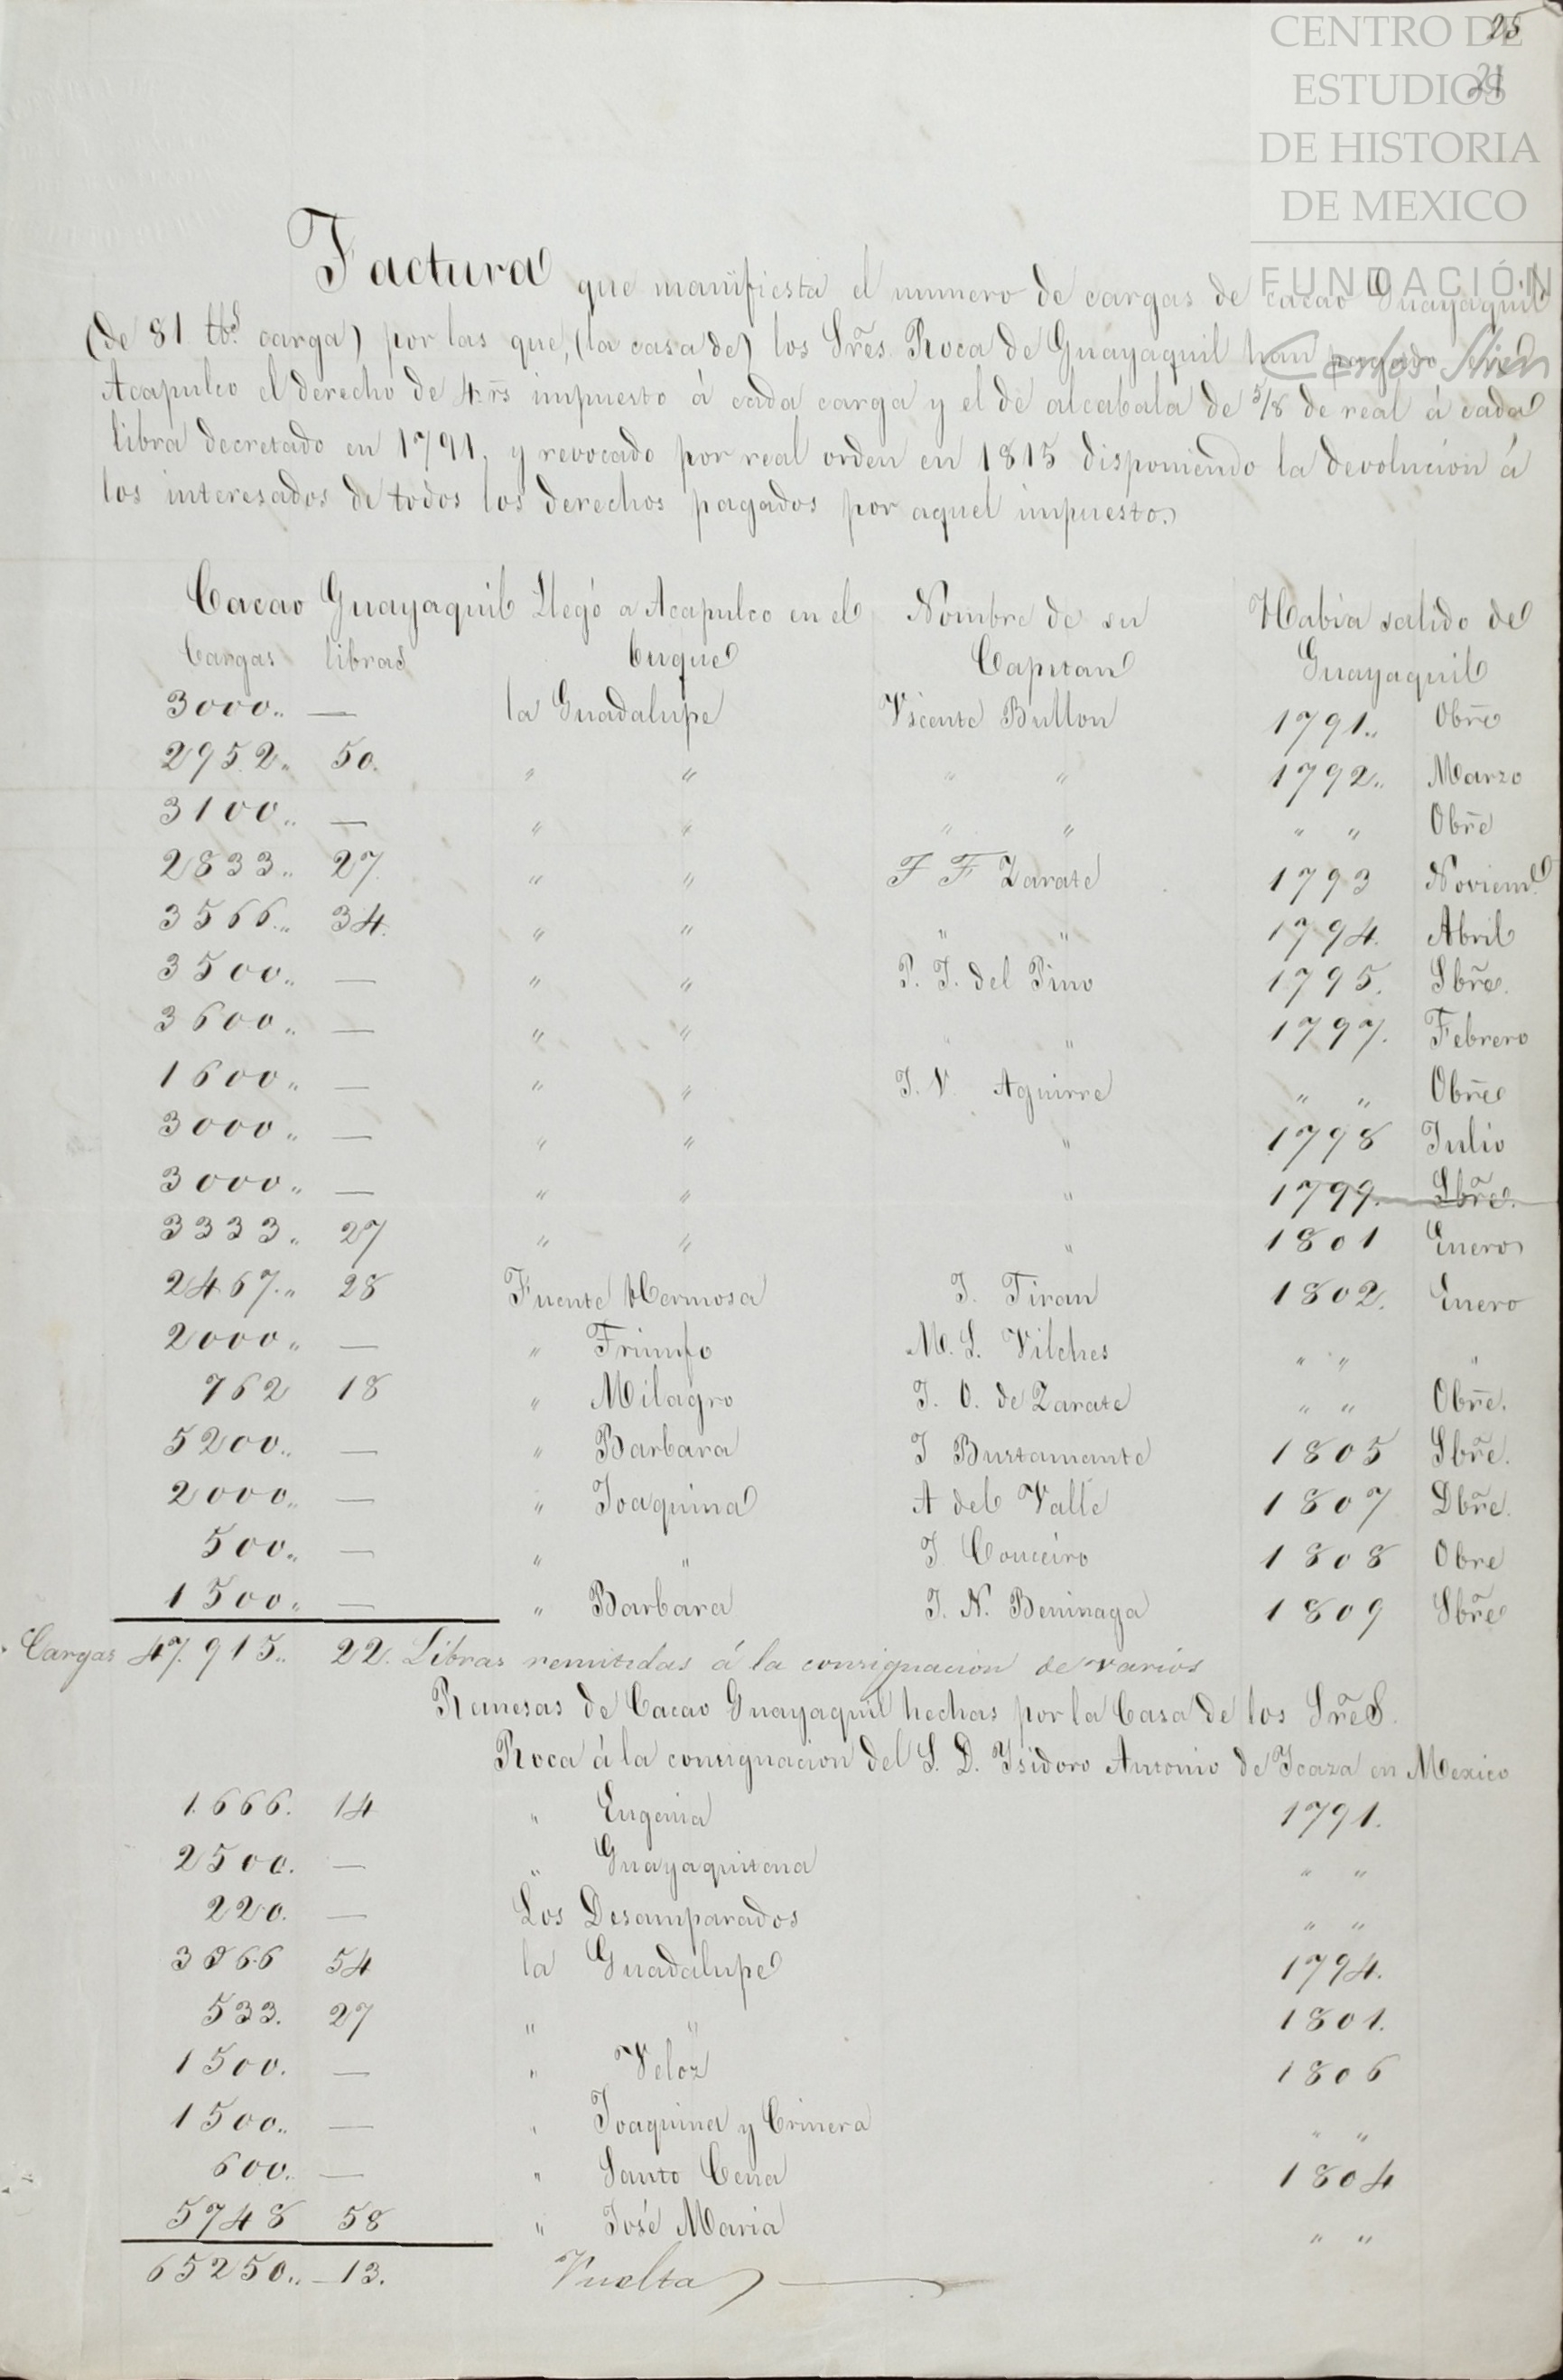 25
21
CENTRO DE
ESTUDIOS
DE HISTORIA
DE MEXICO
FUNDACIÓN
Carlos Slim
Factura que manifiesta el numero de cargas de cacao Guayaquil
(de 81 lbs. carga) por las que, (la casa de) los Sres. Roca de Guayaquil han pagado en
Acapulco el derecho de 4 rs impuesto á cada carga y el de alcabala de 5/8 de real á cada
libra decretado en 1791, y revocado por real orden en 1815 disponiendo la devolucion á
los interesados de todos los derechos pagados por aquel impuesto.
Cacao Guayaquil Llegó a Acapulco en el Nombre de su Habia salido de
Cargas libras buque Capitan Guayaquil
3000.. — la Guadalupe Vicente Bullon 1791.. Obre
2952.. 50. " " " " 1792.. Marzo
3100.. — " " " " " " Obre
2833.. 27. " " F F Zarate 1793 Noviem.e
3566.. 34. " " " " 1794. Abril
3500.. — " " P. J. del Pino 1795. Sbre.
3600.. — " " " " 1797. Febrero
1600.. — " " J. V. Aguirre " " Obre
3000.. — " " " 1798 Julio
3000.. — " " " 1799. Sbre.
3333.. 27 " " " 1801 Enero
2467.. 28 Fuente Hermosa J. Tiran 1802. Enero
2000.. — " Triunfo M. S. Vilches " " "
762 18 " Milagro J. O. de Zarate " " Obre.
5200.. — " Barbara J Bustamante 1805 Sbre.
2000.. — " Joaquina A del Valle 1807 Dbre.
500.. — " " J. Couceiro 1808 Obre
1500.. — " Barbara J. N. Beninaga 1809 Sbre
Cargas 47.915.. 22. Libras remitidas á la consignacion de varios
Remesas de Cacao Guayaquil hechas por la Casa de los SreS.
Roca á la consignacion del S. D. Ysidoro Antonio de Icaza en Mexico
1.666. 14 " Eugenia 1791.
2500. — " Guayaquilena " "
220. — Los Desamparados " "
54 la Guadalupe 1794.
533. 27 " " 1801.
1500. — " Veloz 1806
1500.. — " Joaquina y Crinera " "
600. — " Santo Cena 1804
5748 58 " José Maria " "
65250.. — 13. Vuelta